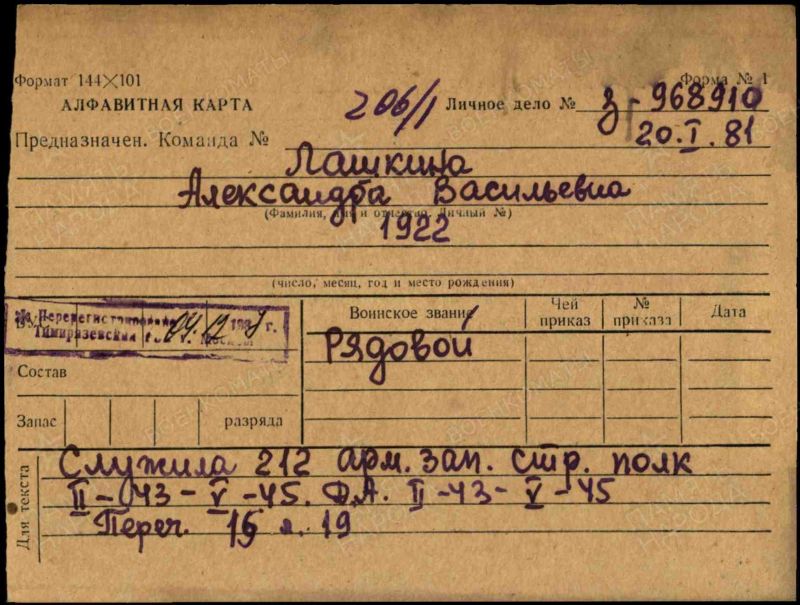 Формат 144×101
Форма № 1
АЛФАВИТНАЯ КАРТА
206/1 Личное дело № З-968910
Предназначен. Команда №
20.I.81
Лашкина
Александра Васильевна
(Фамилия, имя и отчество. Личный №)
1922
(число, месяц, год и место рождения)
Перерегистрован
Тимирязевский
Москвы
04. 198 г.
Воинское звание
Чей приказ
№ приказа
Дата
Рядовой
Состав
Запас разряда
Для текста
Служила 212 арм. зап. стр. полк
II-43-V-45. Д.А. II-43-V-45
Переч. 15 л. 19
ВОЕНКОМАТЫ
ПАМЯТЬ НАРОДА